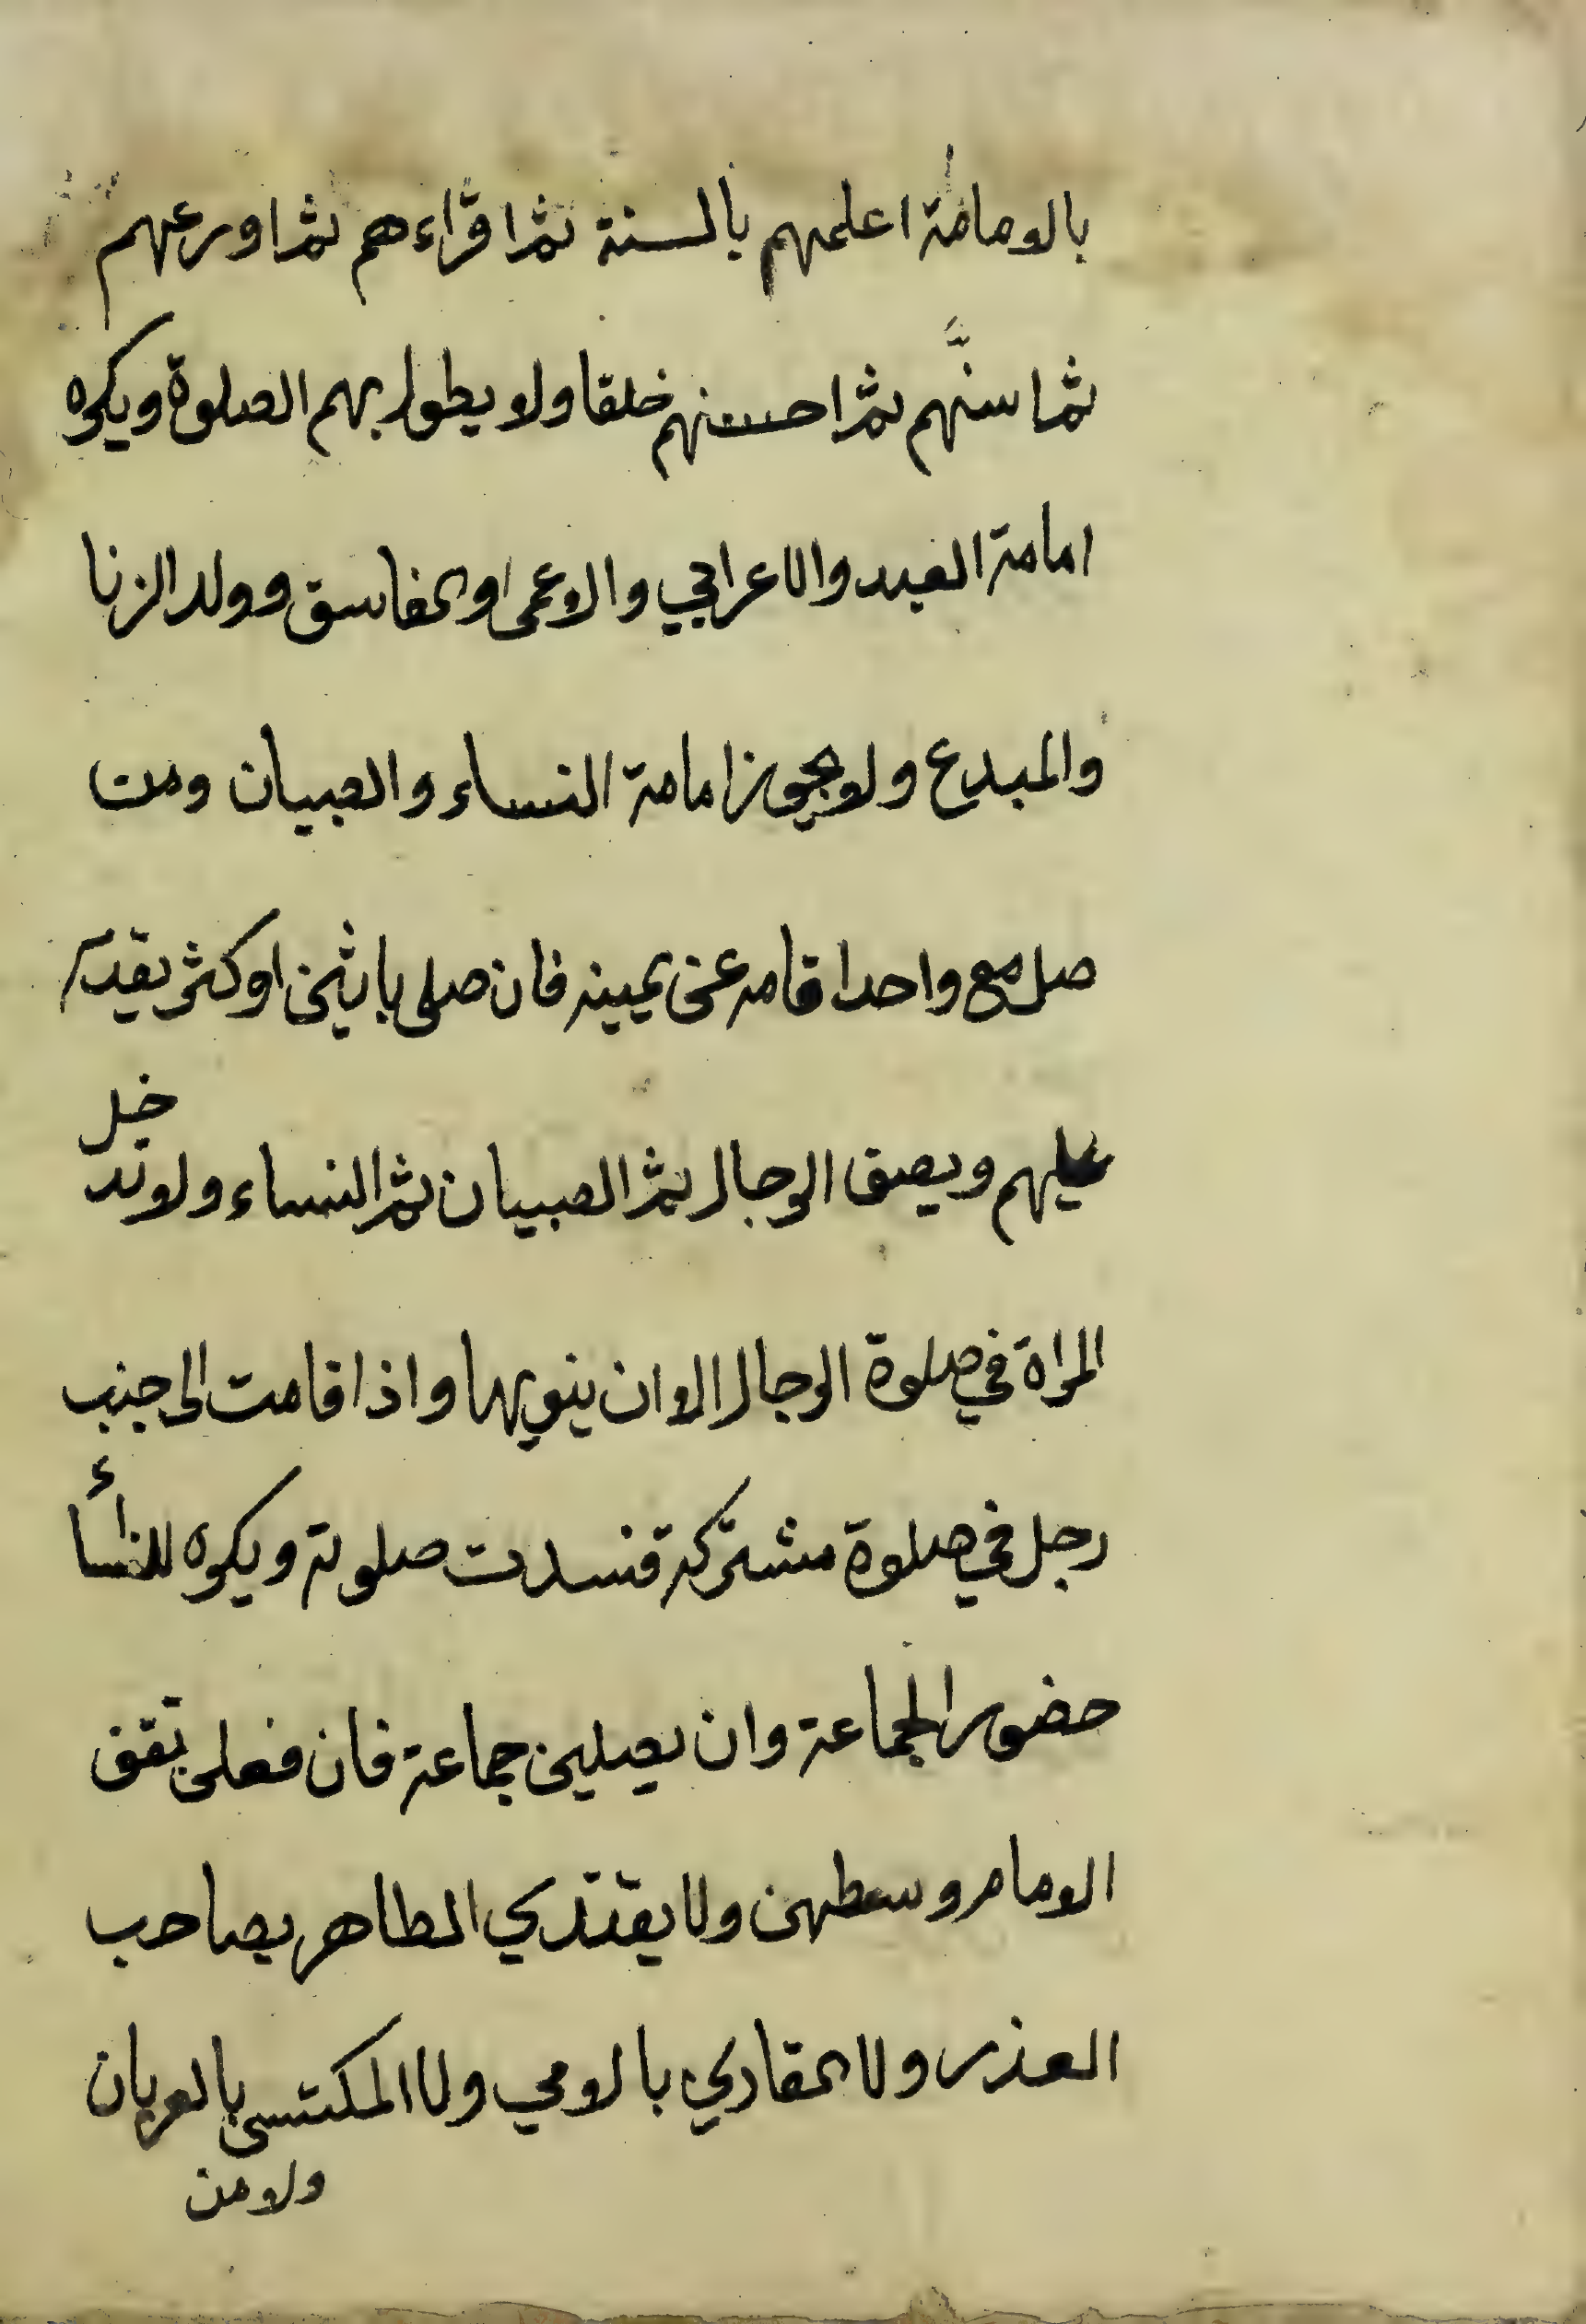 بالامامة اعلمهم بالسنة ثم اقراءهم ثم اورعهم
ثم اسنّهم ثم احسنهم خلقا ولا يطول بهم الصلوة ويكره
امامة العبد والاعرابي والاعمى والفاسق وولد الزنا
والمبدع ولا يجوز امامة النساء والصبيان ومن
صل مع واحد اقامه عن يمينه فان صلى باثنين او كثر يقدم
عليهم ويصف الرجال ثم الصبيان ثم النساء ولا تدخل
المراة في صلوة الرجال الا ان ينويها واذا قامت الى جنب
رجل في صلوة مشتركة فسدت صلوته ويكره للنساء
حضور الجماعة وان يصلين جماعة فان فعلن تقف
الامام وسطهن ولا يقتدي الطاهر بصاحب
العذر ولا القاري بالامي ولا المكتسى بالعريان
ولا من